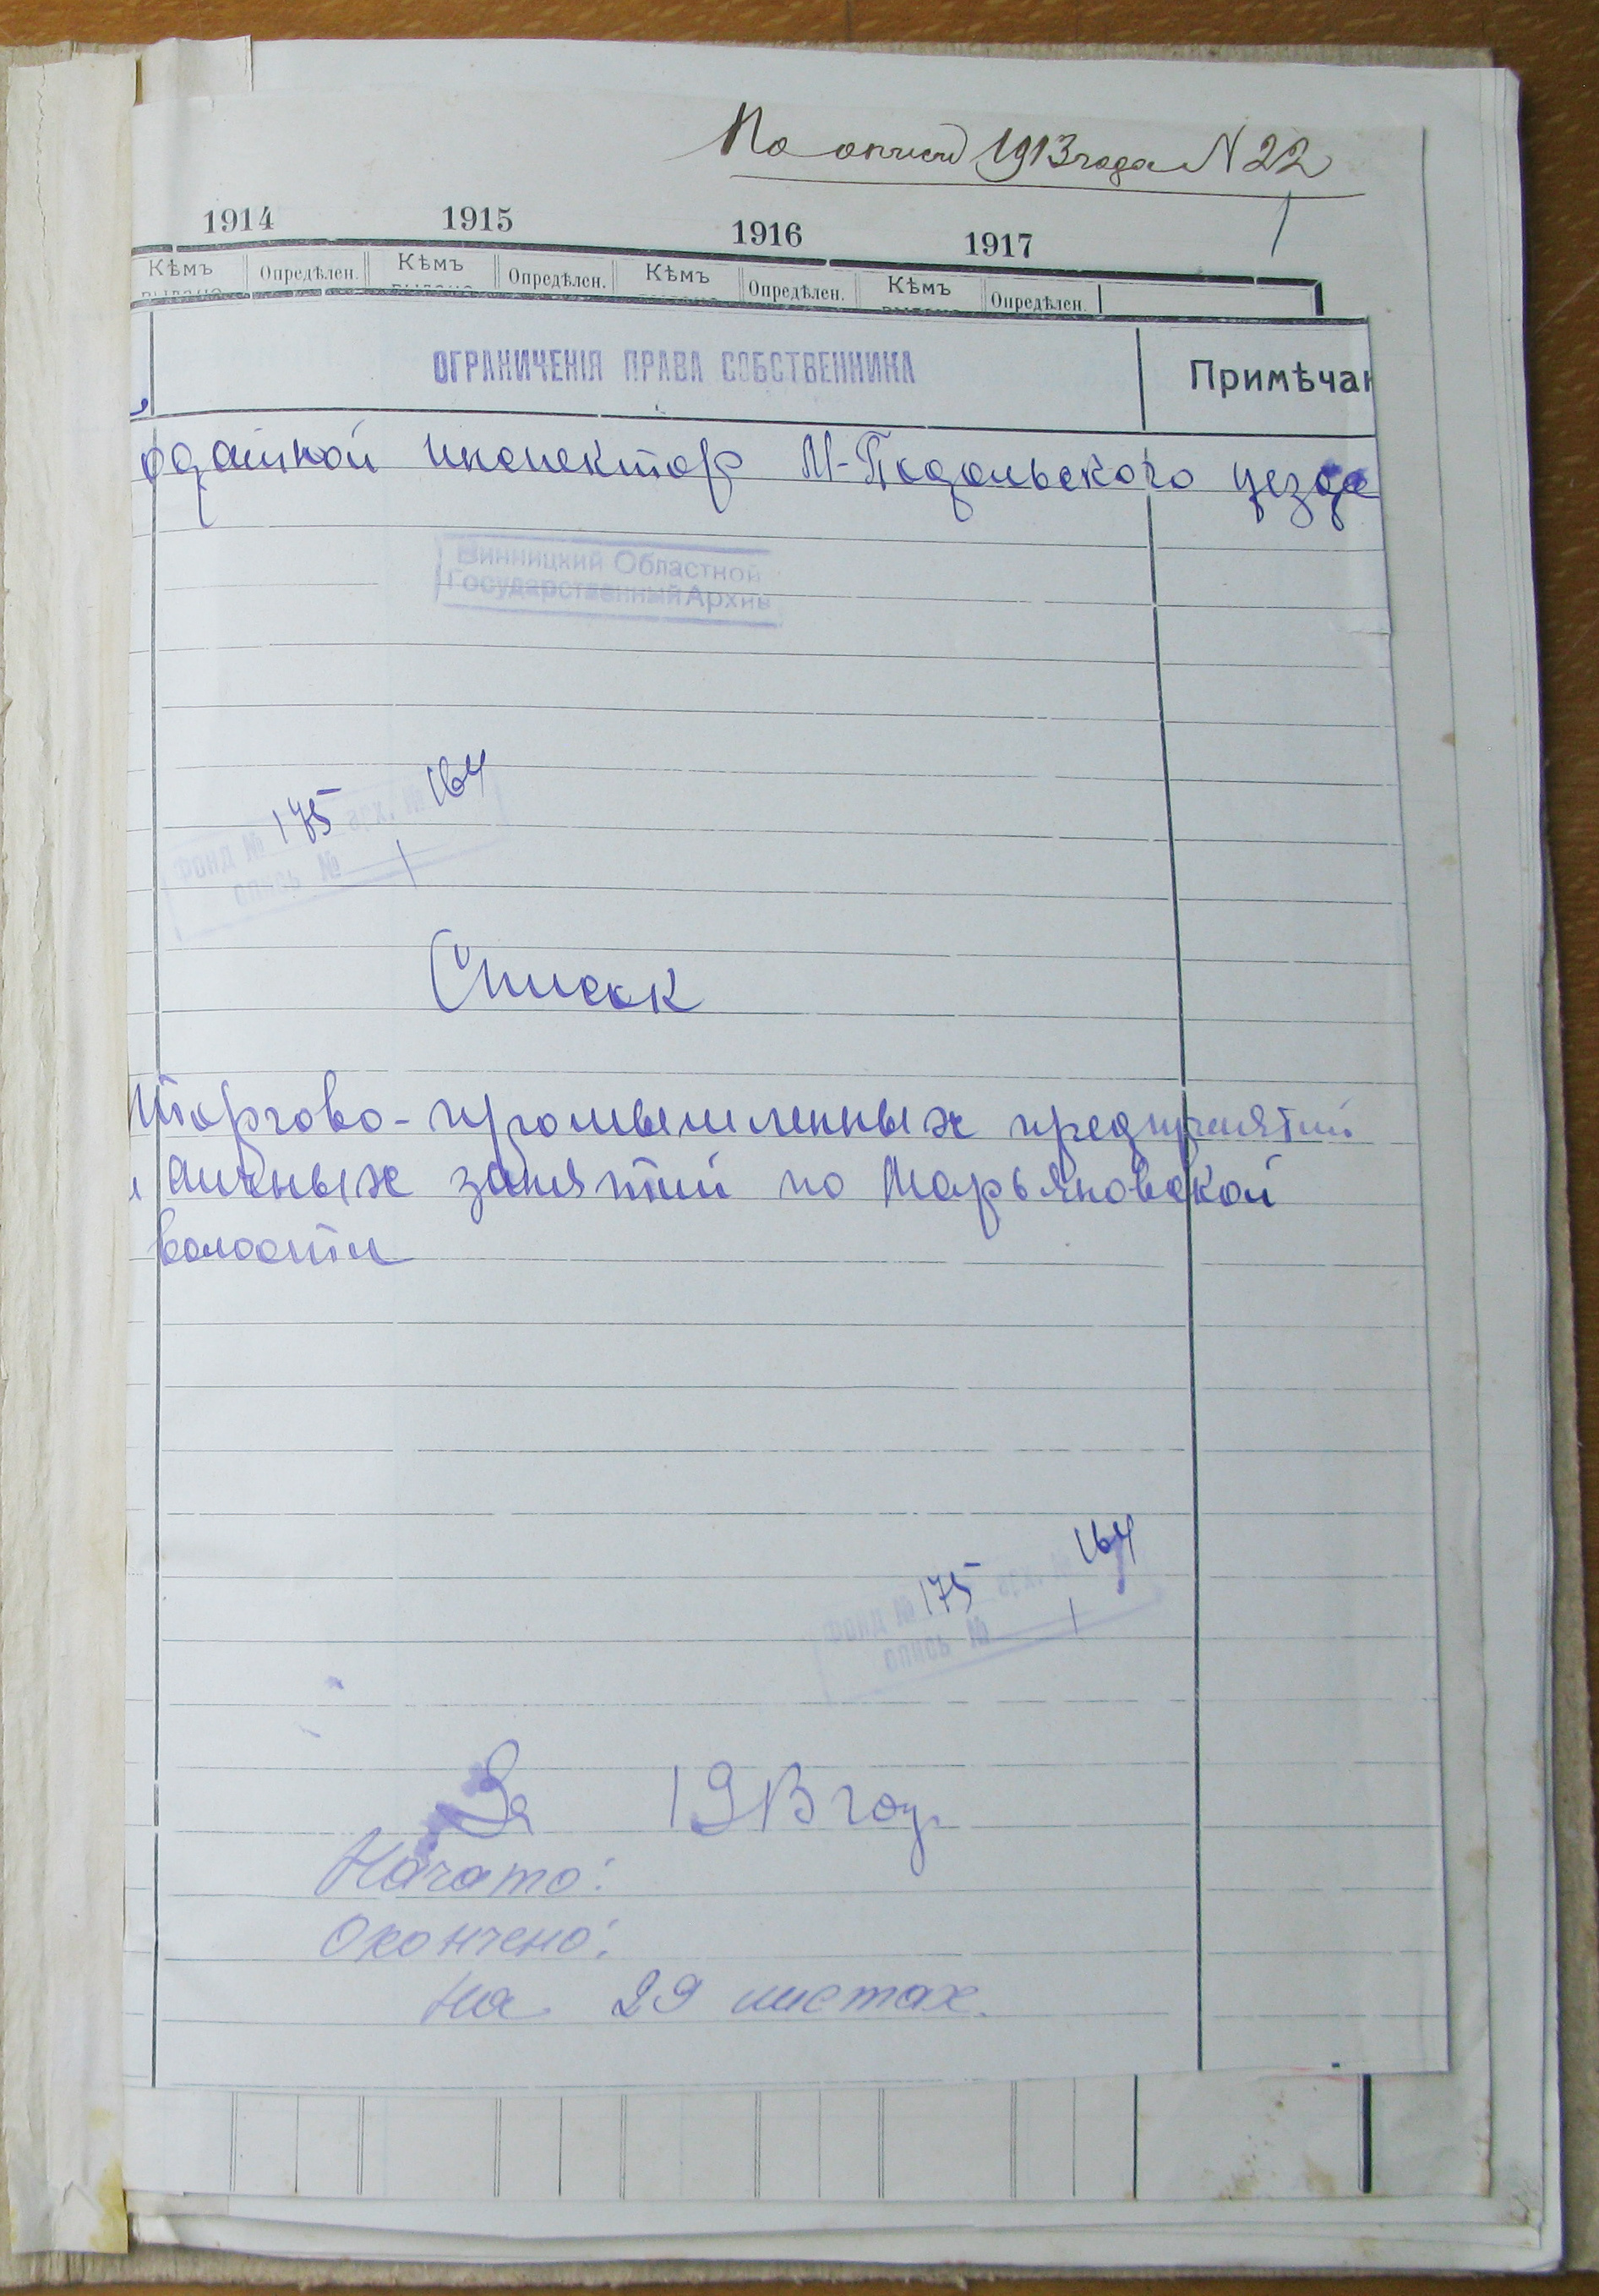 По описи 1913 года N 22
1
1914 1915 1916 1917
Кѣмъ Опредѣлен. Кѣмъ Опредѣлен. Кѣмъ Опредѣлен. Кѣмъ Опредѣлен.
ОГРАНИЧЕНІЯ ПРАВА СОБСТВЕННИКА Примѣчан
одатной инспектор М-Подольского уезда
Винницкий Областной
Государственный Архив
фонд № 175 арх. № 164
опись № 1
Список
Торгово-промышленных предприятий
и личных занятий по Марьяновской
волости
фонд № 175 арх. № 164
опись № 1
За 1913 год
Начато:
Окончено:
На 29 листах.